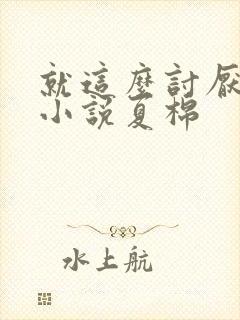 就這麼討厭
小說夏棉
水上航